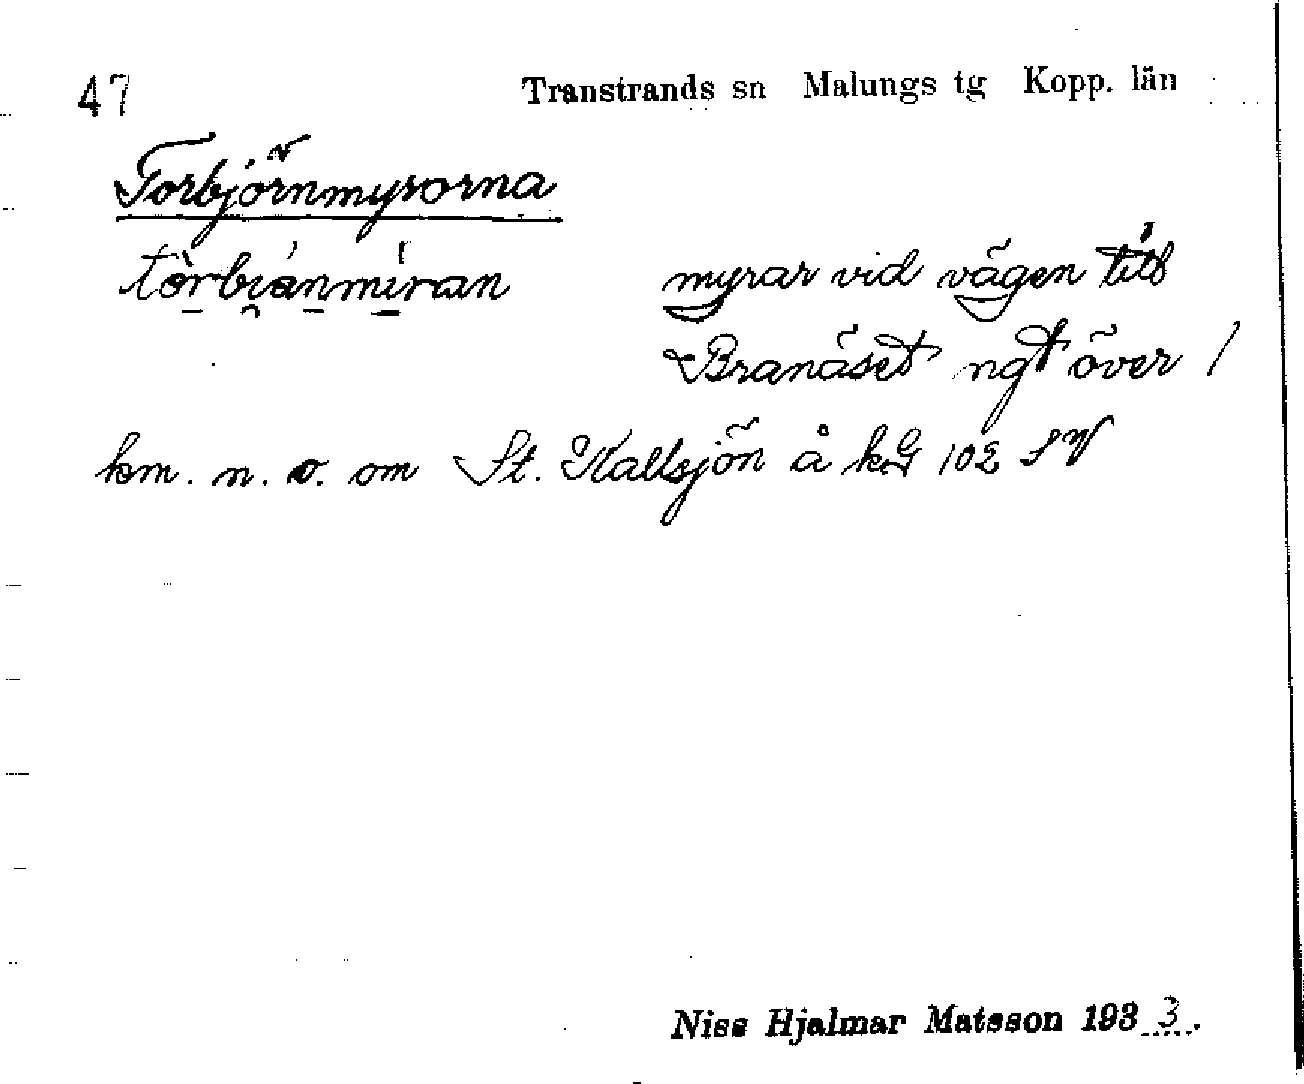 47 Transtrands sn Malungs tg Kopp. län
Torbjörnmyrorna
tòrbiánmíran myrar vid vägen till
Branäset ngt över 1
km. n. o. om St. Kallsjön å kbl 102 SV
Niss Hjalmar Matsson 1933.